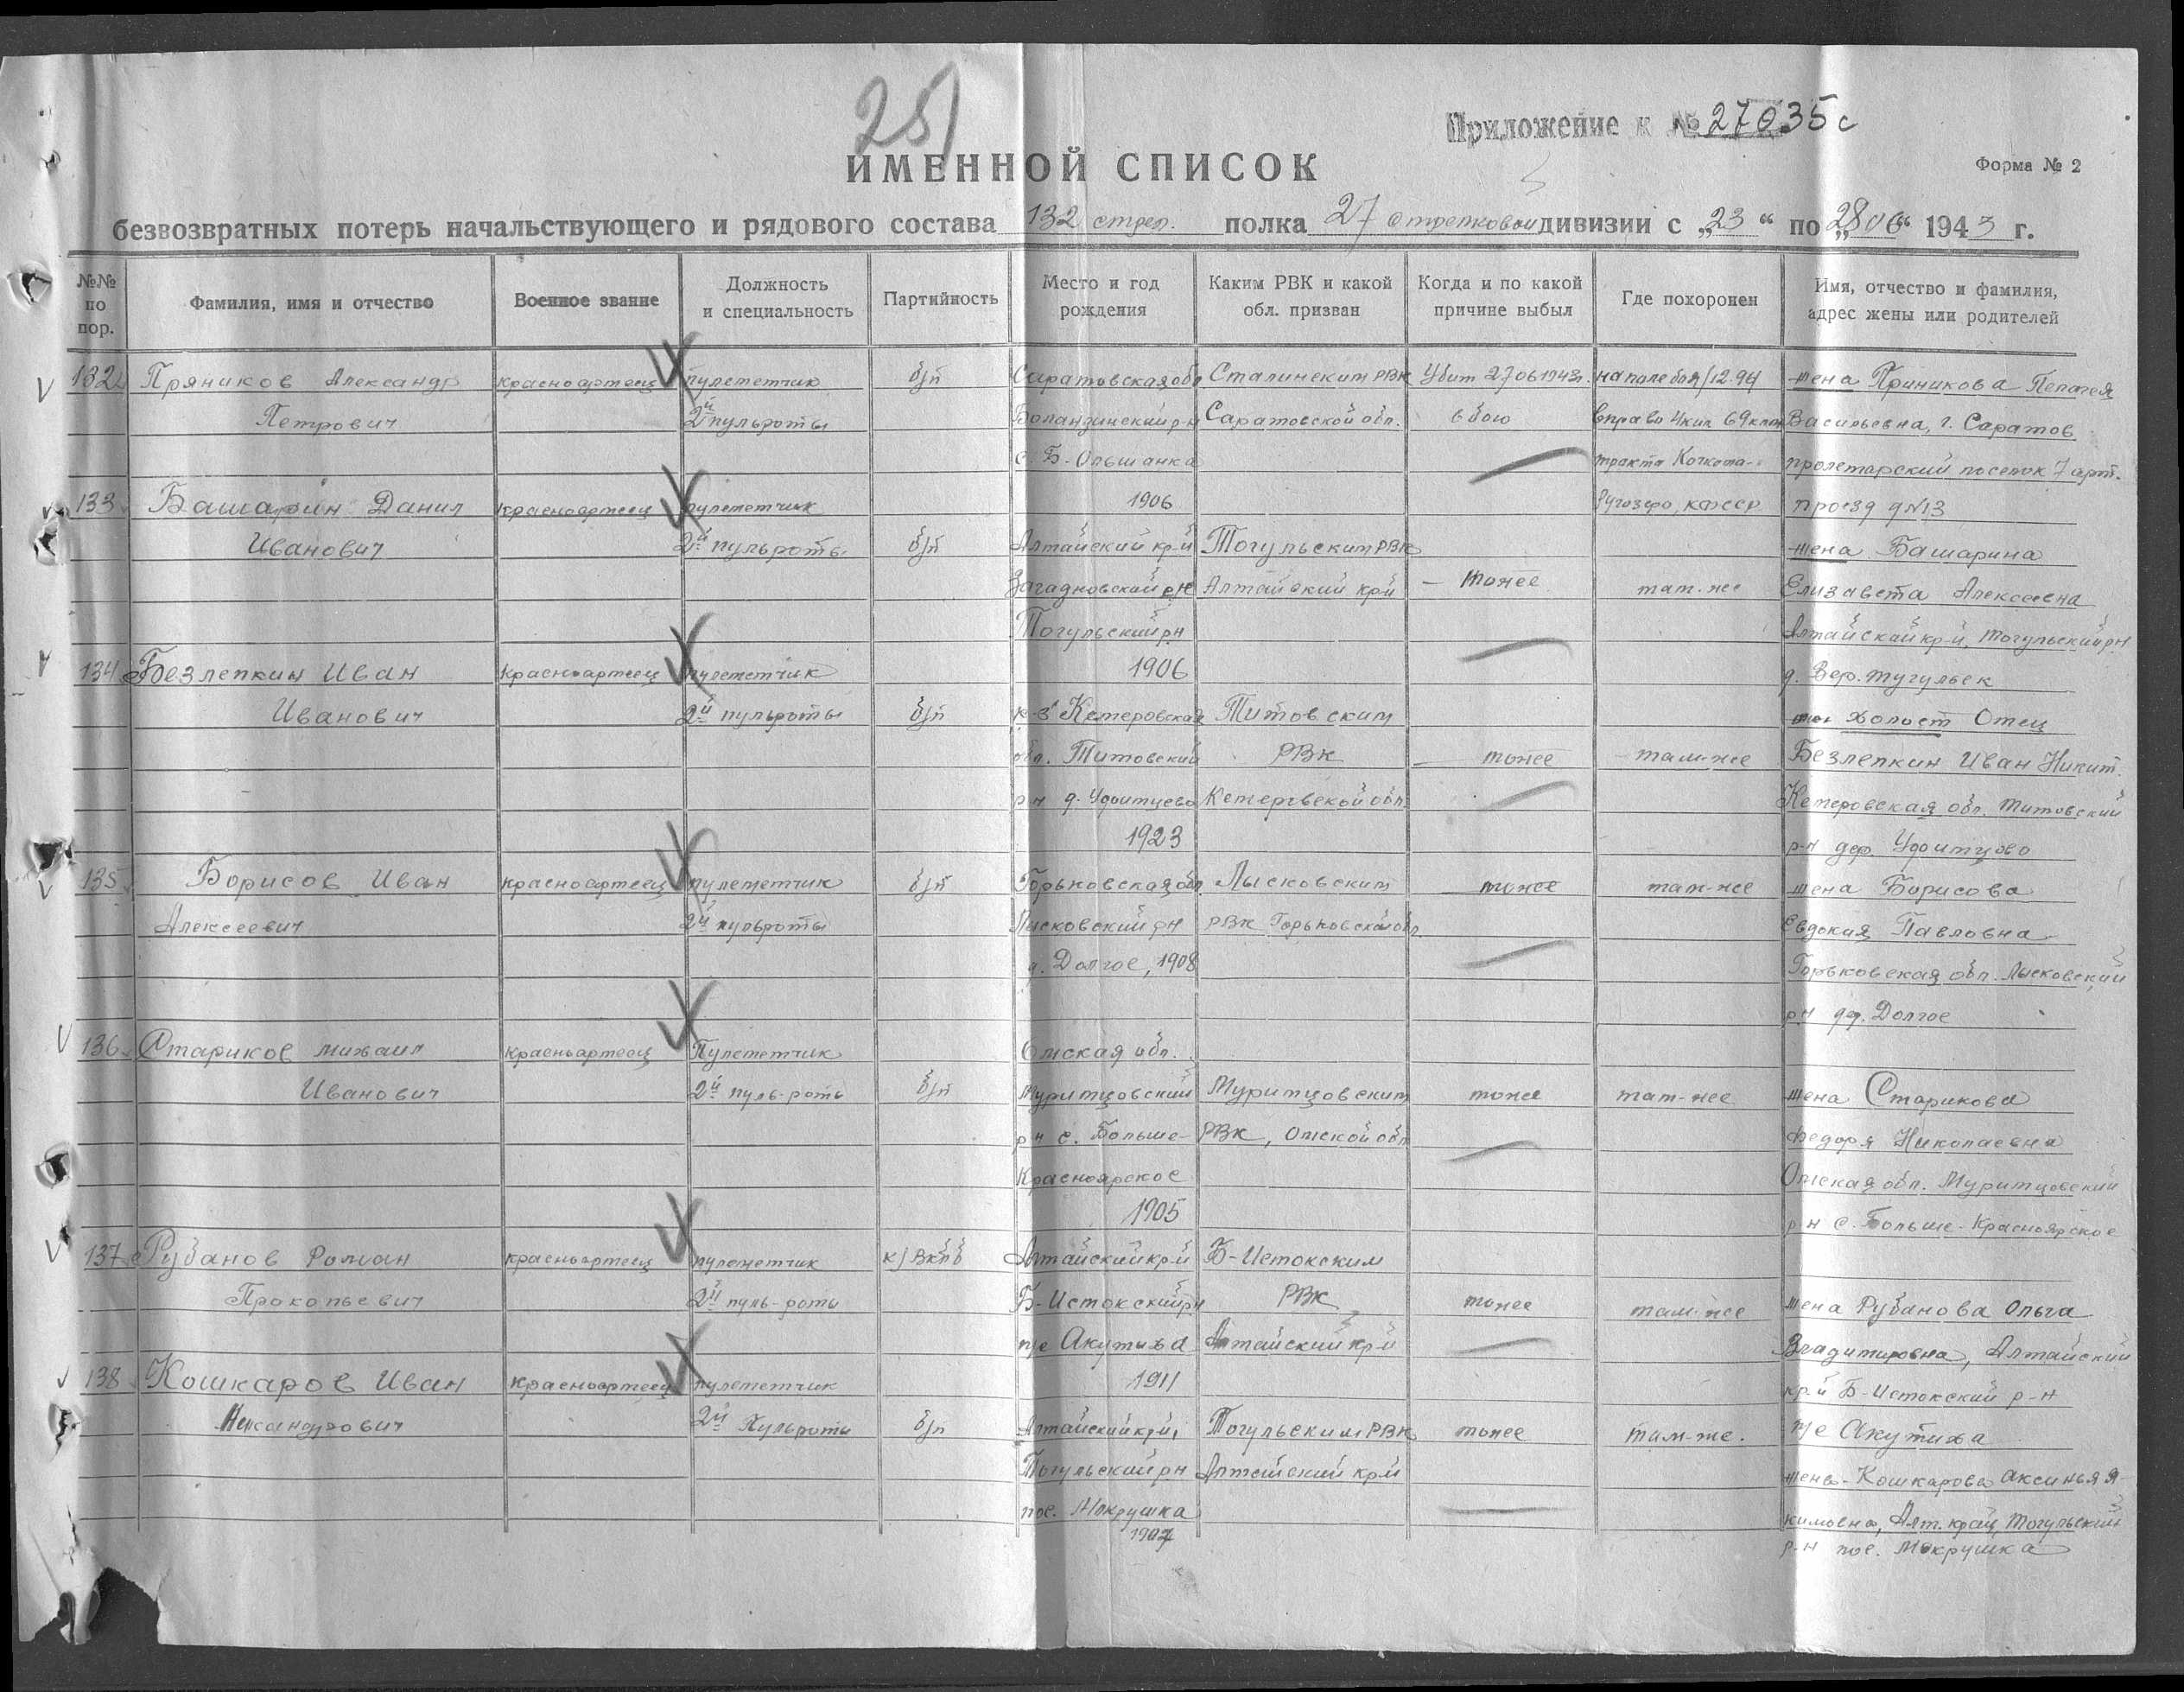 251
Приложение к № 27035с
ИМЕННОЙ СПИСОК
Форма № 2
безвозвратных потерь начальствующего и рядового состава 132 стрел. полка 27 стрелковой дивизии с „23“ по „28 06“ 1943 г.
№№ по пор.
Фамилия, имя и отчество
Военное звание
Должность и специальность
Партийность
Место и год рождения
Каким РВК и какой обл. призван
Когда и по какой причине выбыл
Где похоронен
Имя, отчество и фамилия, адрес жены или родителей
132 Пряников Александр красноармеец пулеметчик б/п Саратовская обл Сталинским РВК Убит 27061943г. на поле боя/12.94 жена Пряникова Пелагея
Петрович 2й пульроты Баландинский р-н Саратовской обл. в бою вправо 4 км 69 клм Васильевна, г. Саратов
с. Б-Ольшанка тракта Кочкома- пролетарский поселок 7 арт.
133 Башарин Данил красноармеец пулеметчик 1906 Ругозеро, КФССР проезд д№13
Иванович 2й пульроты б/п Алтайский кр-й Тогульским РВК жена Башарина
Алтайский кр-й тоже там-же Елизавета Алексеевна
Тогульский рн Алтайский кр-й, Тогульский рн
134 Безлепкин Иван красноармеец пулеметчик 1906 д. Вер. Тугульск
Иванович 2й пульроты б/п Кемеровская Титовским холост Отец
обл. Титовский РВК тоже там-же Безлепкин Иван Никит.
р-н д. Кемеровской обл. Кемеровская обл. Титовский
1923 р-н дер.
135 Борисов Иван красноармеец пулеметчик б/п Горьковская обл. Лысковским тоже там-же жена Борисова
Алексеевич 2й пульроты Лысковский рн РВК Горьковской обл. Евдокия Павловна
д. Долгое, 1908 Горьковская обл. Лысковский
рн дер. Долгое
136 Стариков Михаил красноармеец Пулеметчик Омская обл.
Иванович 2й пуль-роты б/п Муритцовский Муритцовским тоже там-же жена Старикова
рн с. Больше- РВК, Омской обл Федоря Николаевна
Красноярское Омская обл. Муритцовский
1905 р-н с. Больше-Красноярское
137 Рубанов Роман красноармеец пулеметчик к/ВКПб Алтайский кр-й Б-Истокским
Прокопьевич 2й пуль-роты Б-Истокский рн РВК тоже там-же жена Рубанова Ольга
п/е Акутиха Алтайский кр-й Владимировна, Алтайский
138 Кошкаров Иван красноармеец пулеметчик 1911 кр-й Б-Истокский р-н
Никандрович 2й Пульроты б/п Алтайский кр-й, Тогульским РВК тоже там-же. п/е Акутиха
Тогульский рн Алтайский кр-й жена-Кошкарова Аксинья Я-
пос. Мокрушка кимовна, Алт. край, Тогульский
1907 р-н пос. Мокрушка